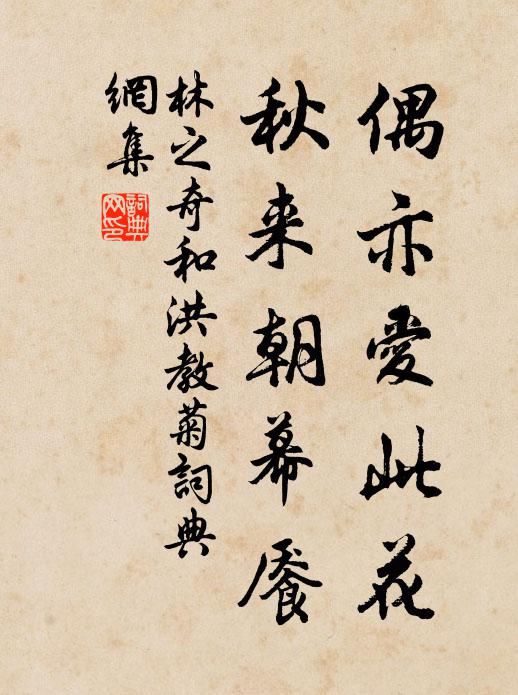 偶亦愛此花
秋来朝幕餍
林之奇和洪教菊詞典
網集
詞典网印